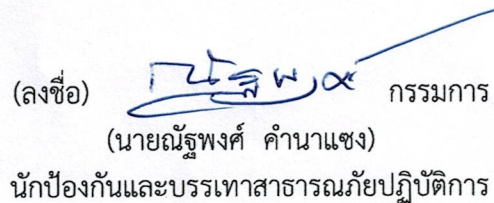 (ลงชื่อ) ณัฐพงศ์ กรรมการ
(นายณัฐพงศ์ คำนาแซง)
นักป้องกันและบรรเทาสาธารณภัยปฏิบัติการ